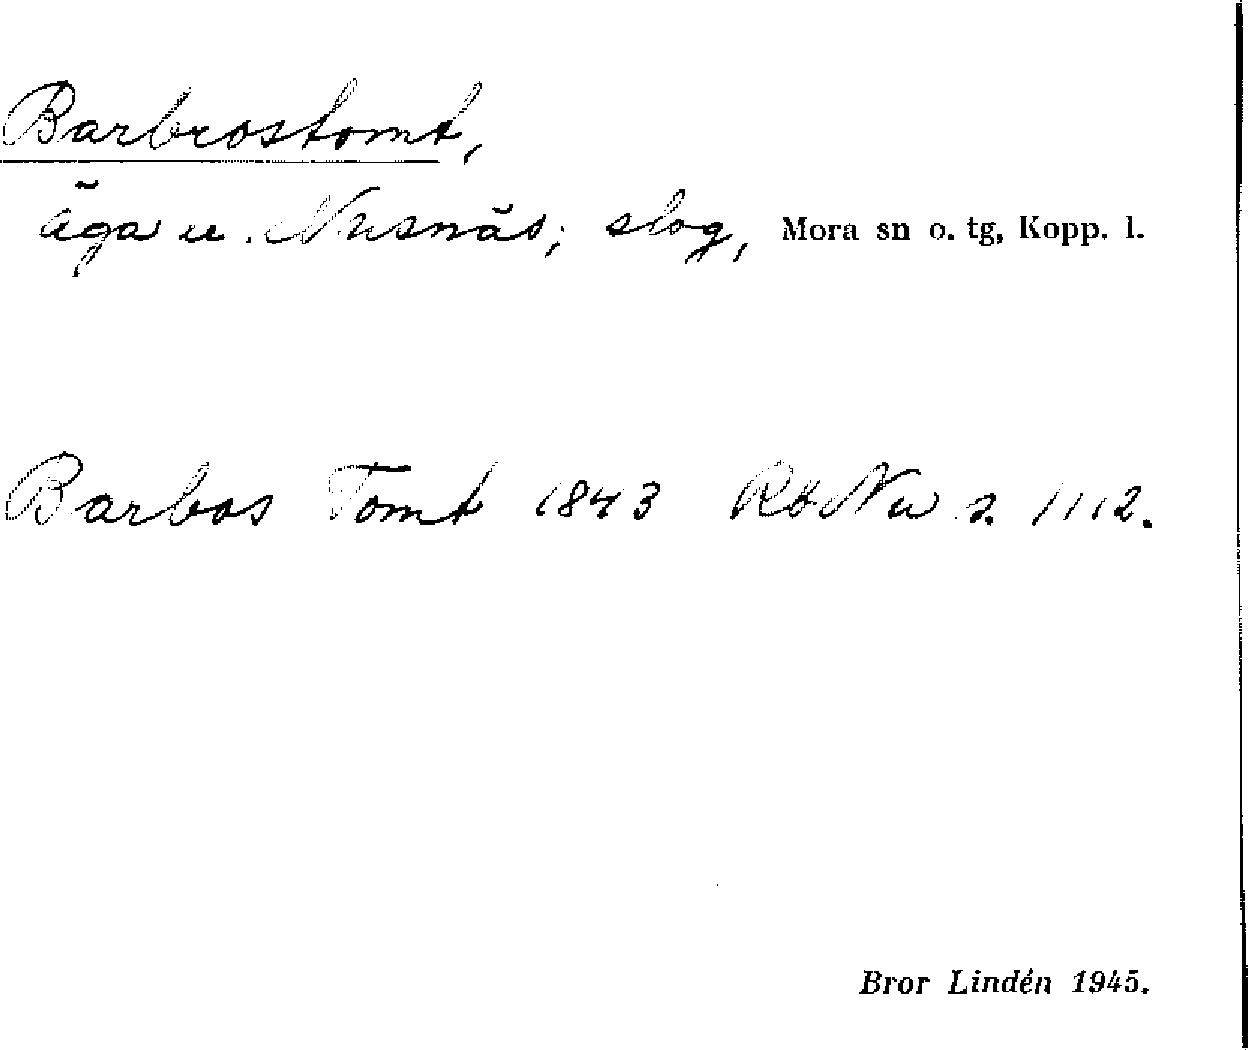 Barbrostomt,
äga u. Nusnäs; slog, Mora sn o. tg, Kopp. l.
Barbos Tomt 1843 Rb Nu s. 1112.
Bror Lindén 1945.